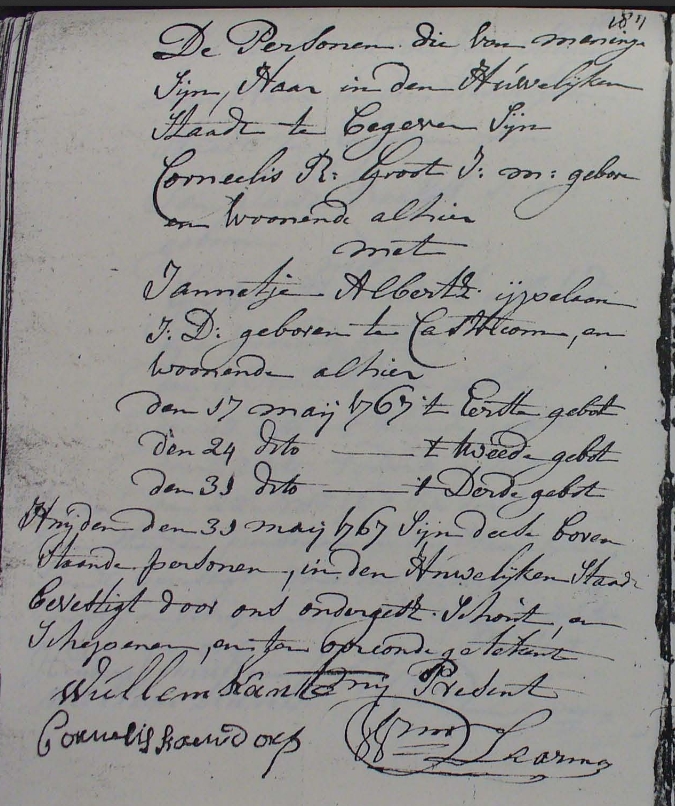 De Personen die van meninge
Sijn, Haar in den Huwelijken
Staadt te Begeven Sijn
Corneelis R: Groot J: m: gebore
en Woonende alhier
met
Jannetje Albertz: ijpelaan
J: D: geboren te Castricom, en
Woonende alhier
den 17 maij 1767 't Eerste gebot
den 24 dito — t tweede gebot
den 31 dito — t Derde gebot
Huijden den 31 maij 1767 Sijn deese boven
Staande personen, in den Huwelijken Staadt
bevestigt door ons ondergetk. Schout, en
Schepenen, en ten oorconde getekent
Willem mij Present
Cornelis